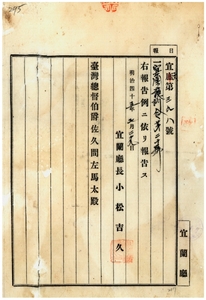 報 日
宜庶第三九八號
右報告例ニ依リ報告ス
明治四十 年 月 日
宜蘭廳長 小松吉久
臺灣總督伯爵佐久間左馬太殿
宜蘭廳